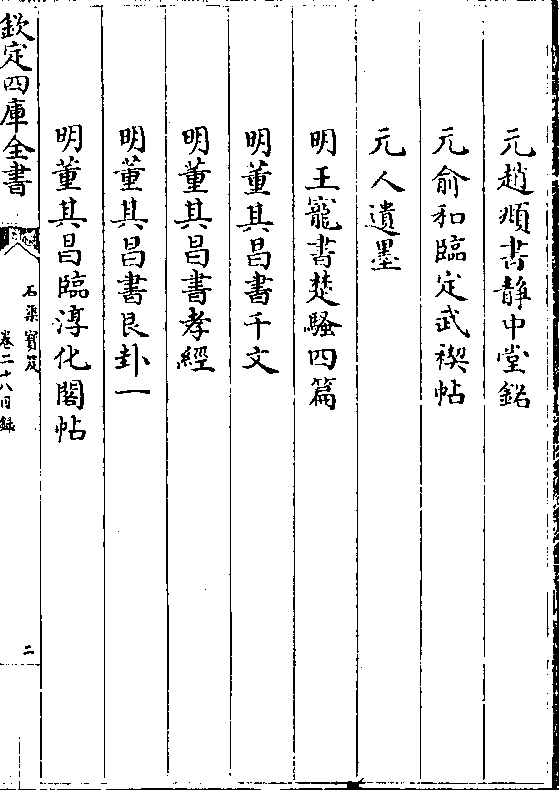 元趙頫書靜中堂銘
元俞和臨定武禊帖
元人遺墨
明王寵書楚騷四篇
明董其昌書千文
明董其昌書孝經
明董其昌書艮卦一
明董其昌臨淳化閣帖
欽定四庫全書
石渠寶笈
卷二十八目録
二